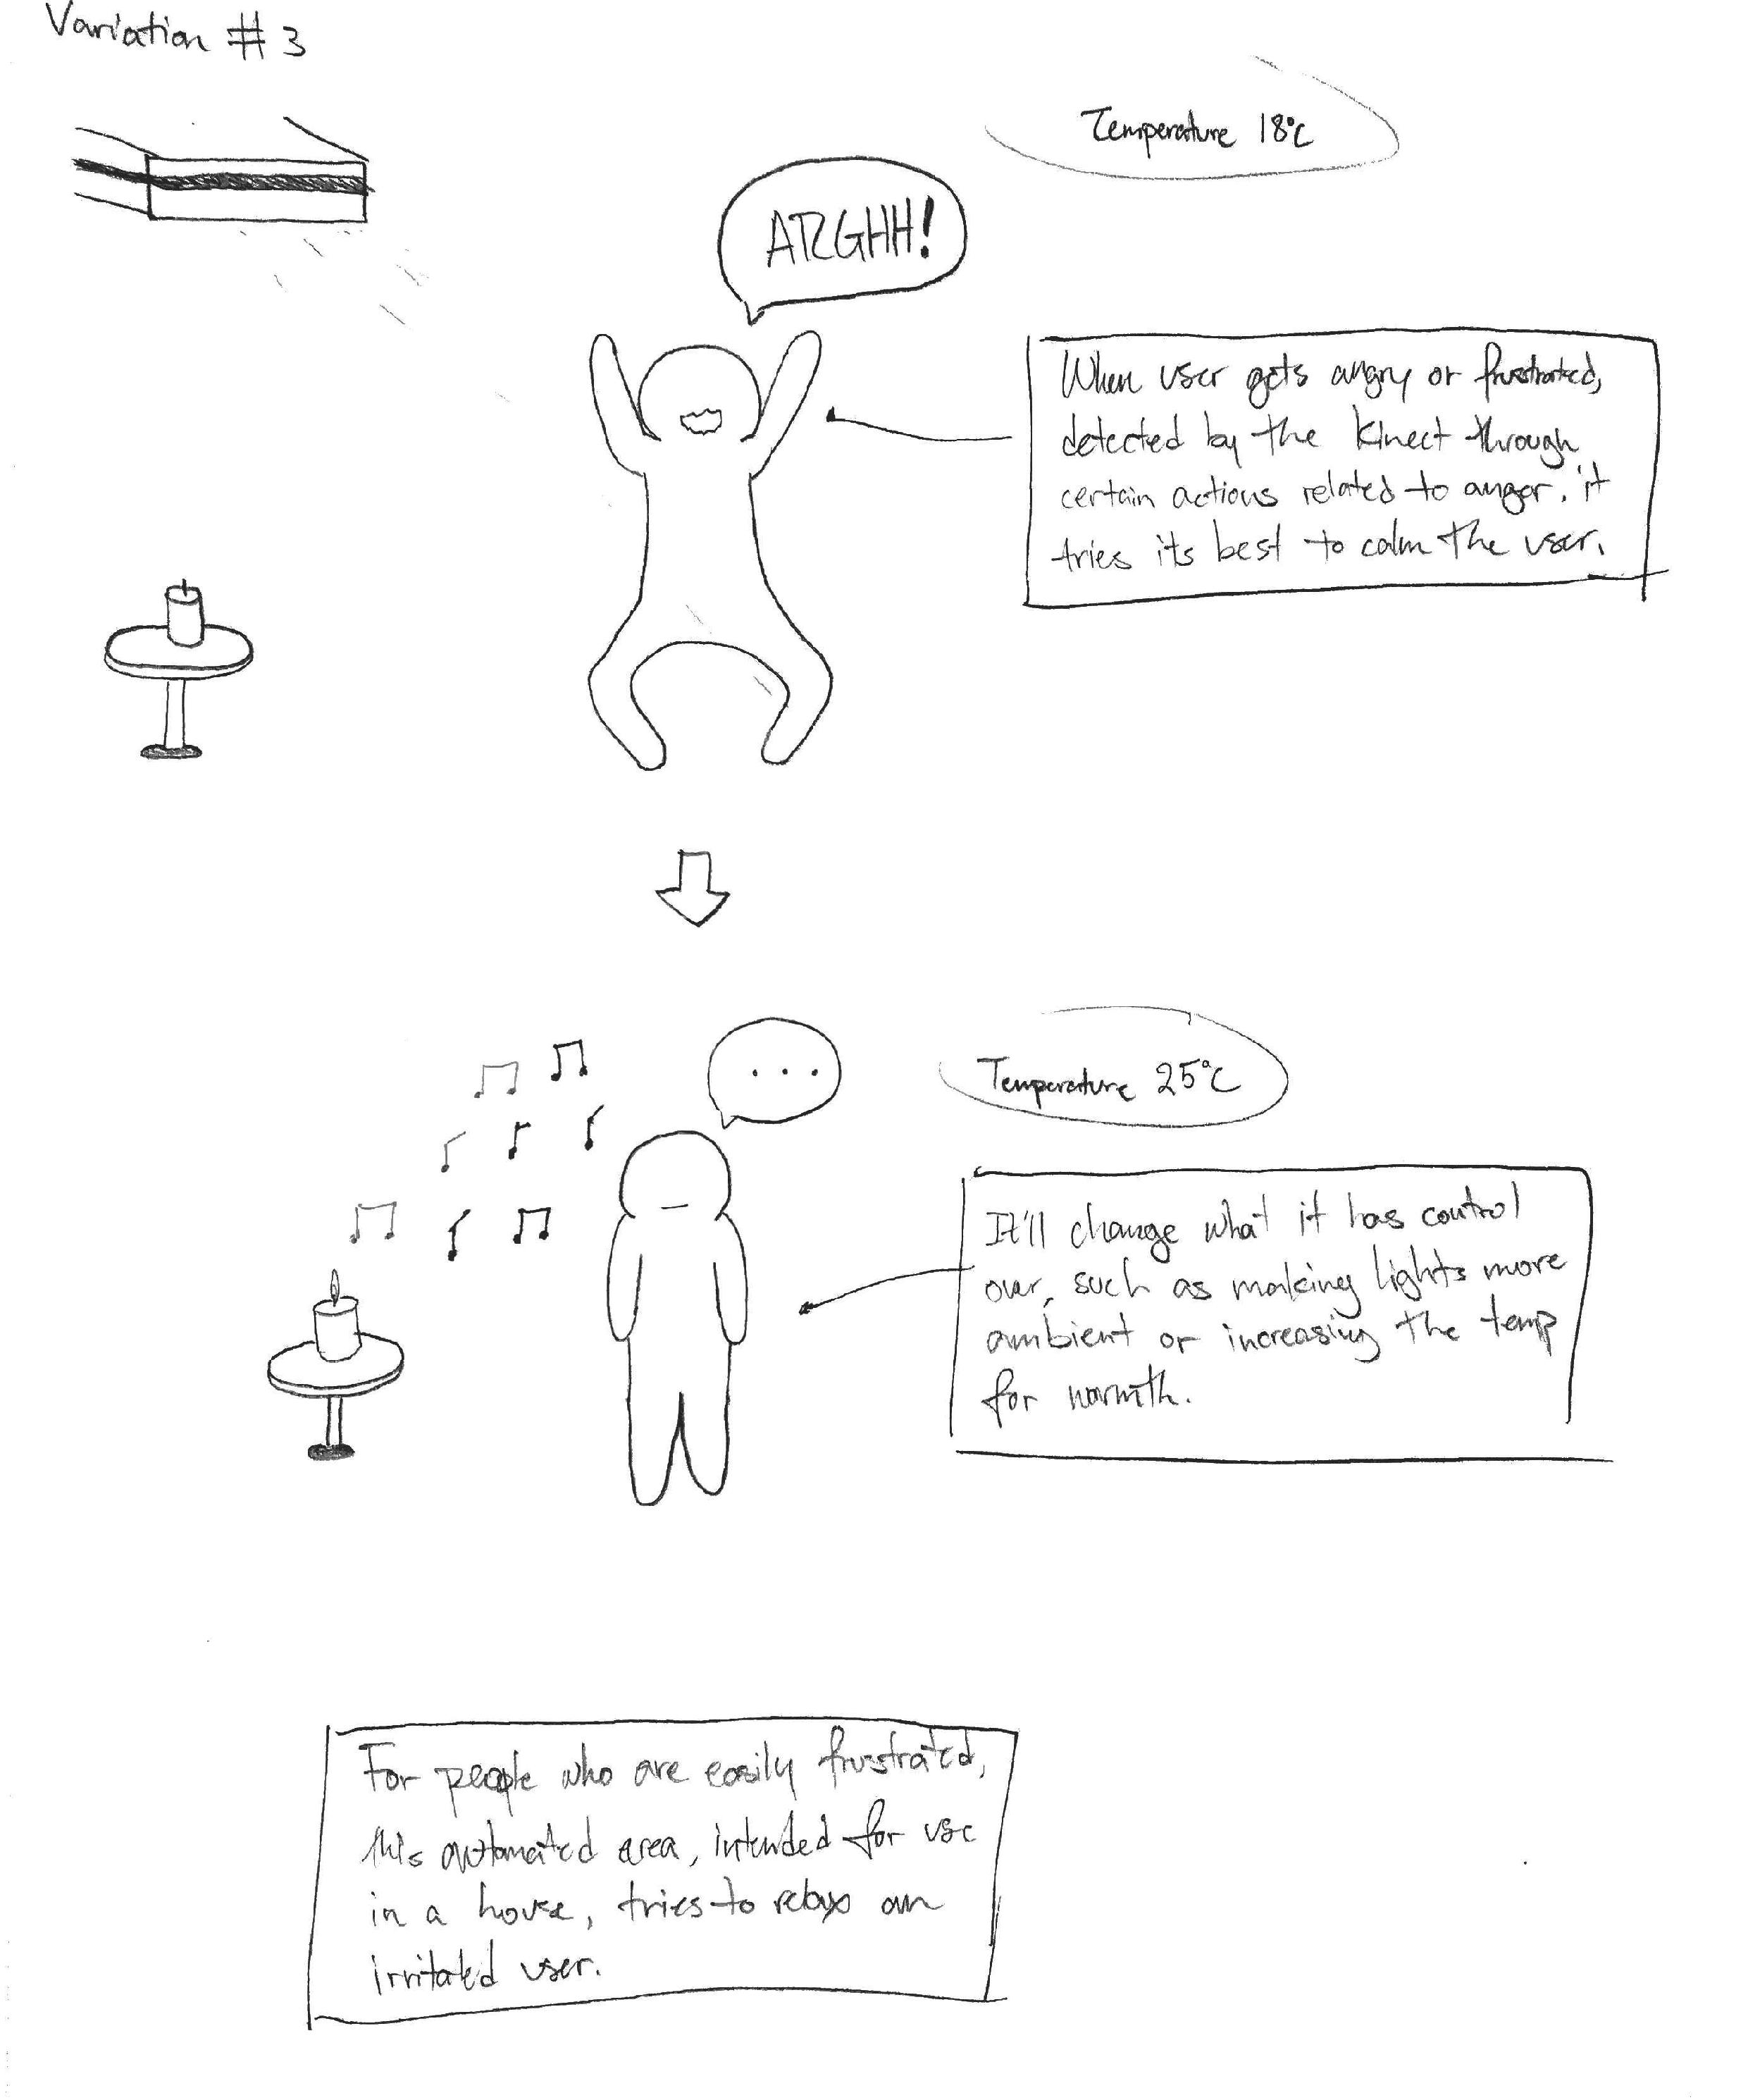 Variation # 3
Temperature 18°C
ARGHH!
When user gets angry or frustrated,
detected by the Kinect through
certain actions related to anger, it
tries its best to calm the user.
...
Temperature 25°C
It'll change what it has control
over, such as making lights more
ambient or increasing the temp
for warmth.
For people who are easily frustrated,
this automated area, intended for use
in a house, tries to relax an
irritated user.